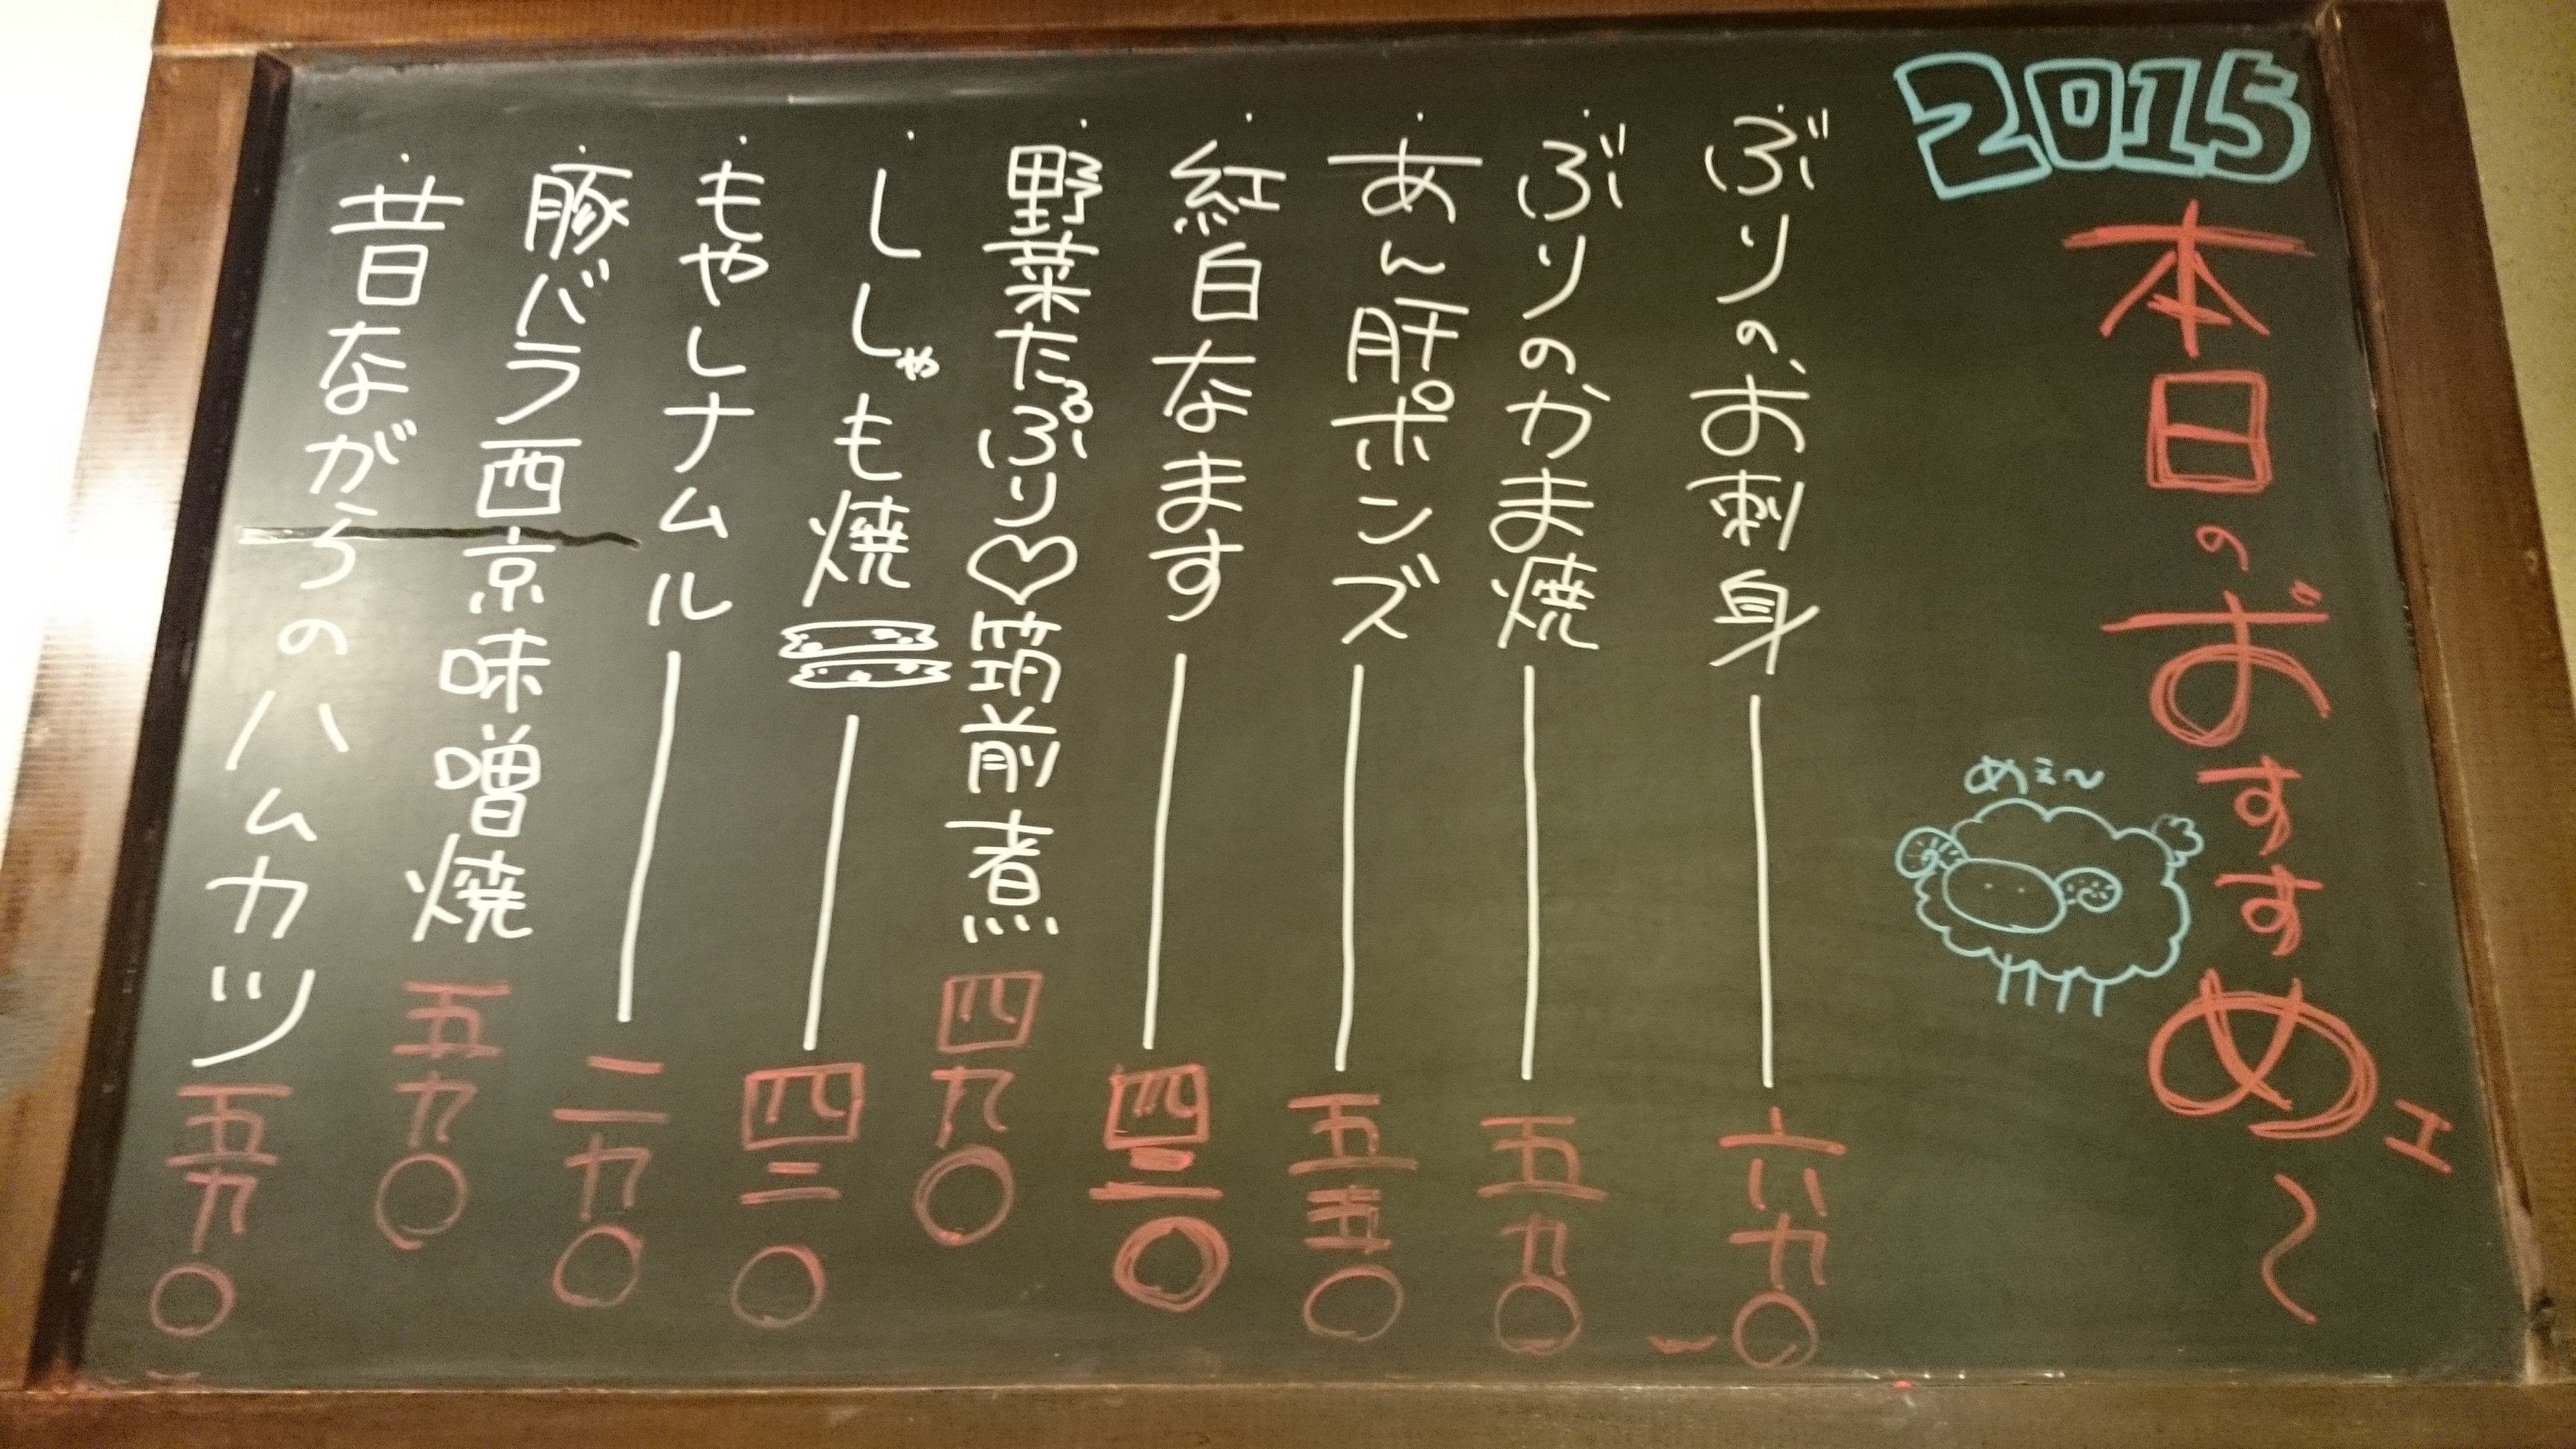 2015
本日のおすすめェ〜
めぇ〜
・ぶりのお刺身 六九〇
・ぶりのかま焼 五九〇
・あん肝ポンズ 五五〇
・紅白なます 四二〇
・野菜たっぷり♡筑前煮 四九〇
・ししゃも焼 四二〇
・もやしナムル 二九〇
・豚バラ西京味噌焼 五九〇
・昔ながらのハムカツ 五九〇